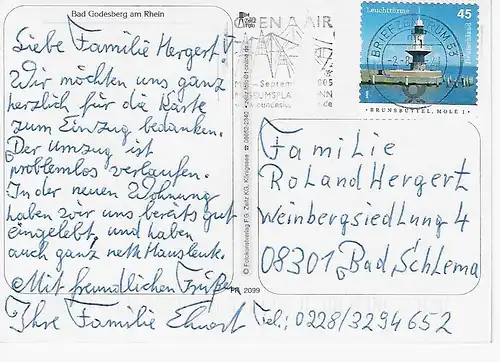 Bad Godesberg am Rhein
Liebe Familie Hergert!
Wir möchten uns ganz
herzlich für die Karte
zum Einzug bedanken.
Der Umzug ist
problemlos verlaufen.
In der neuen Wohnung
haben wir uns bereits gut
eingelebt, und haben
auch ganz nette Hausleute.
Mit freundlichen Grüßen
Ihre Familie
Tel.: 0228/3294652
PR 2099
OPEN AIR
BRIEFZENTRUM 53
Leuchttürme
45
Deutschland
BRUNSBÜTTEL, MOLE 1
Familie
Roland Hergert
Weinbergsiedlung 4
08301 Bad Schlema